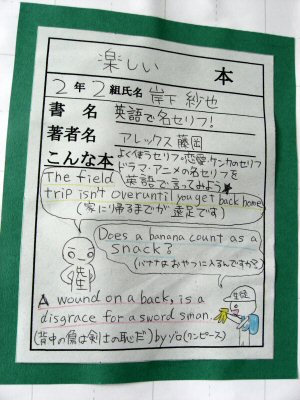 楽しい 本
2年2組氏名 岸下 紗也
書名 英語で名セリフ!
著者名 アレックス藤岡
こんな本 よく使うセリフ・恋愛・ケンカのセリフ
ドラマ・アニメの名セリフを
英語で言ってみよう★
The field
trip isn't over until you get back home
(家に帰るまでが遠足です)
先生
Does a banana count as a
snack?
(バナナはおやつに入るんですか?)
生徒
A wound on a back, is a
disgrace for a sword sman.
(背中の傷は剣士の恥だ) by ゾロ(ワンピース)